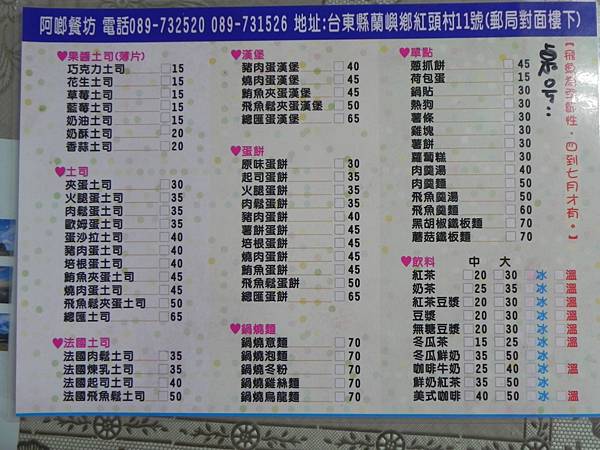 阿啷餐坊 電話089-732520 089-731526 地址:台東縣蘭嶼鄉紅頭村11號(郵局對面樓下)
♥果醬土司(薄片)
巧克力土司 15
花生土司 15
草莓土司 15
藍莓土司 15
奶油土司 15
奶酥土司 20
香蒜土司 20
♥土司
夾蛋土司 30
火腿蛋土司 35
肉鬆蛋土司 35
歐姆蛋土司 35
蛋沙拉土司 40
豬肉蛋土司 40
培根蛋土司 40
鮪魚夾蛋土司 45
燒肉蛋土司 45
飛魚鬆夾蛋土司 50
總匯土司 65
♥法國土司
法國肉鬆土司 35
法國煉乳土司 35
法國起司土司 40
法國飛魚鬆土司 50
♥漢堡
豬肉蛋漢堡 40
燒肉蛋漢堡 45
鮪魚夾蛋漢堡 45
飛魚鬆夾蛋漢堡 50
總匯蛋漢堡 65
♥蛋餅
原味蛋餅 30
起司蛋餅 35
火腿蛋餅 35
肉鬆蛋餅 35
豬肉蛋餅 40
薯餅蛋餅 45
培根蛋餅 40
燒肉蛋餅 45
鮪魚蛋餅 45
飛魚鬆蛋餅 50
總匯蛋餅 60
♥鍋燒麵
鍋燒意麵 70
鍋燒泡麵 70
鍋燒冬粉 70
鍋燒雞絲麵 70
鍋燒烏龍麵 70
♥單點
蔥抓餅 45
荷包蛋 15
鍋貼 30
熱狗 30
薯條 30
雞塊 30
薯餅 30
蘿蔔糕 30
肉羹湯 40
肉羹麵 50
飛魚羹湯 50
飛魚羹麵 60
黑胡椒鐵板麵 70
蘑菇鐵板麵 70
♥飲料 中 大
紅茶 20 30 冰 溫
奶茶 25 35 冰 溫
紅茶豆漿 20 30 冰 溫
豆漿 20 30 冰 溫
無糖豆漿 20 30 冰 溫
冬瓜茶 15 25 冰 溫
冬瓜鮮奶 35 50 冰
咖啡牛奶 25 40 冰 溫
鮮奶紅茶 35 50 冰
美式咖啡 40 50 冰 溫
桌号:
【飛魚為季節性,四到七月才有。】